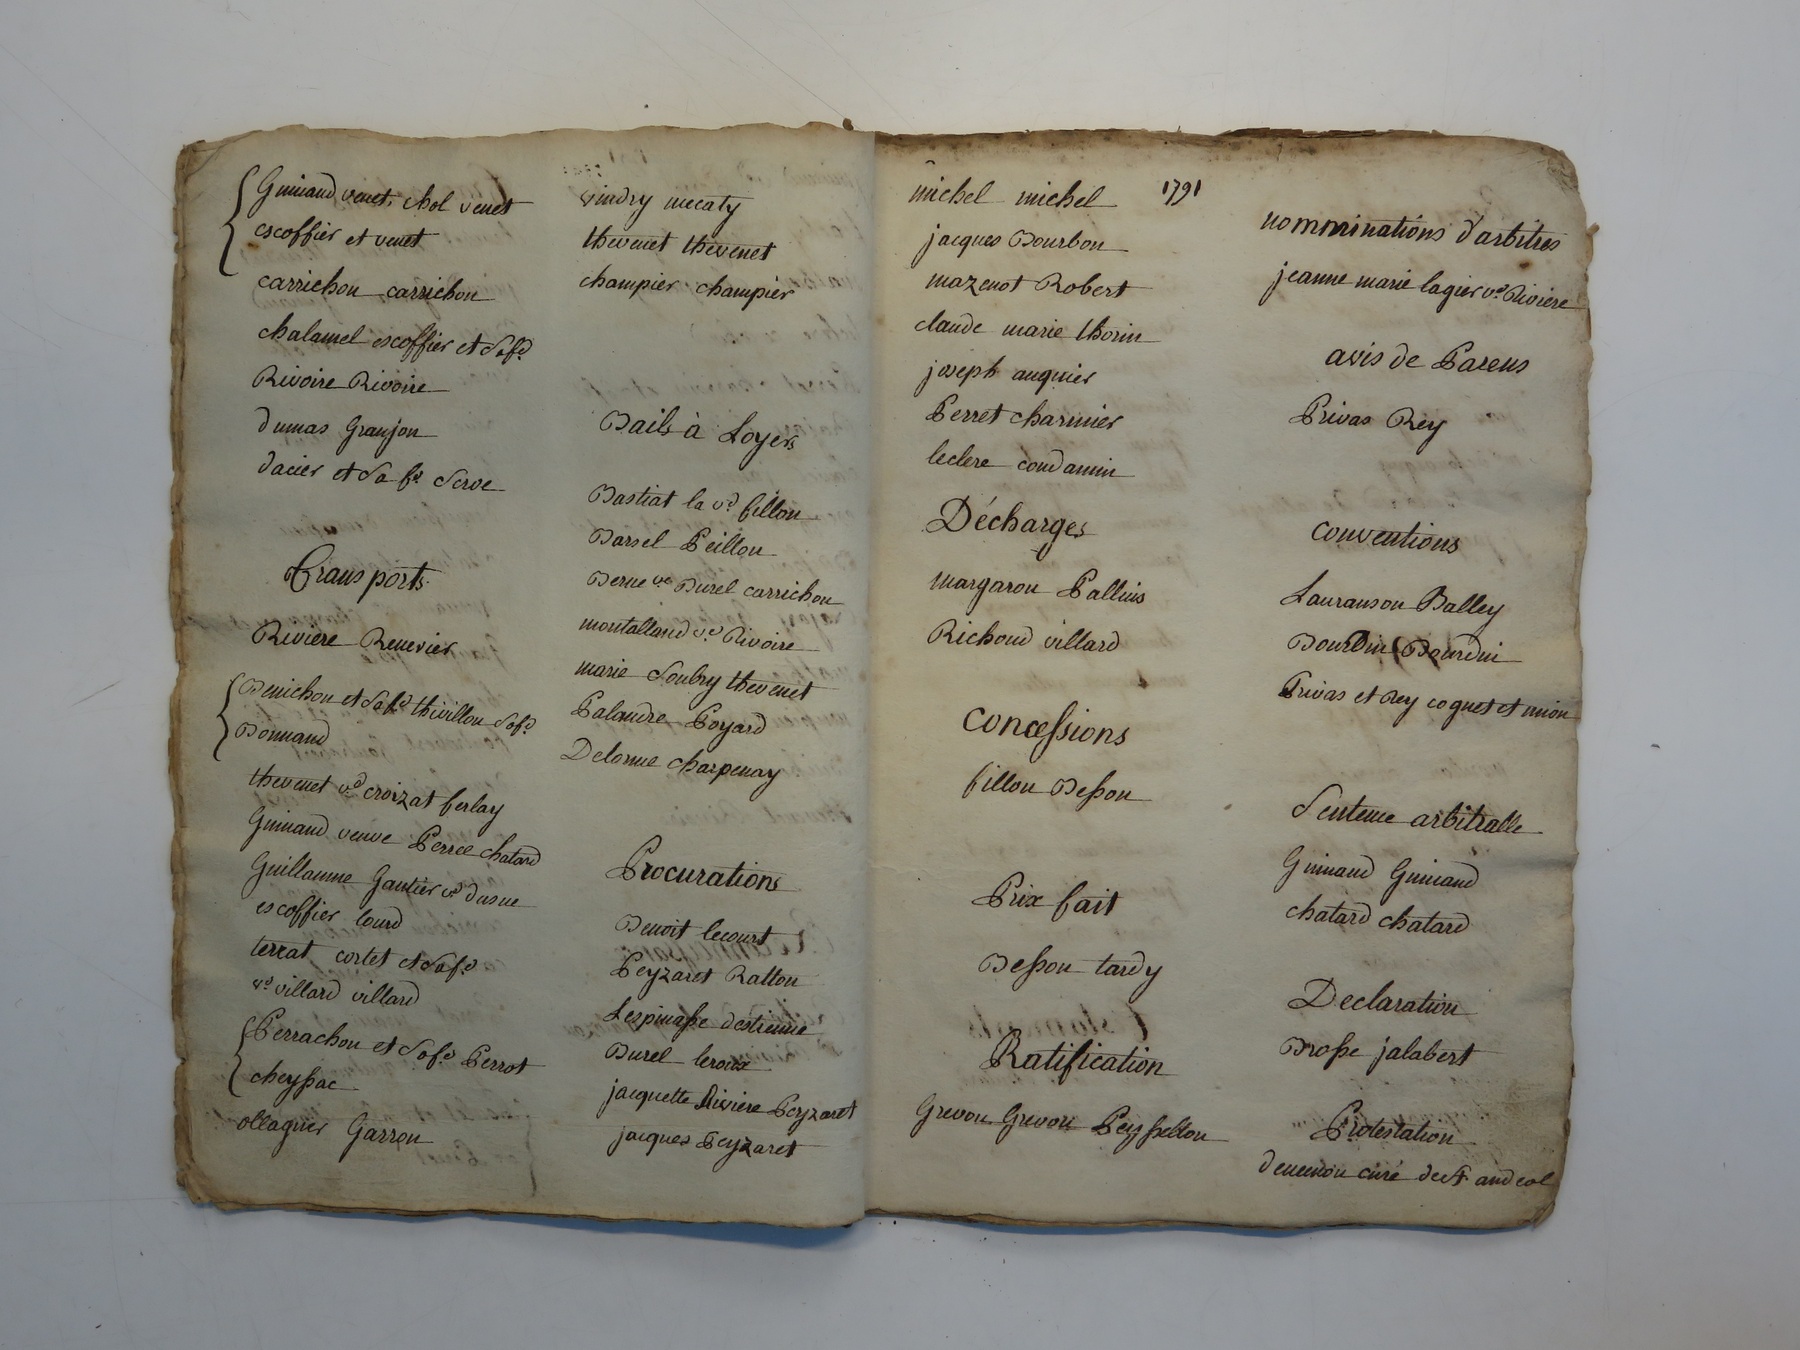 Guinand venet, chol venet
escoffier et venet
carrichon carrichon
chalamel escoffier et Sa fe
Rivoire Rivoire
dumas Granjon
dacier et Sa fe Serve
Transports
Riviere Renevier
Benichon et Sa fe thivillon Sa fe
Bonnand
thevenet ve croizat ferlay
Guinand veuve Perree chatard
Guillaume Gautier ve dusne
escoffier tourd
terrat cortet et Sa fe
ve villard villard
Perrachon et Sa fe Perrot
cheyssac
ollagner Garron
vindry mecaty
thevenet thevenet
champier champier
Bails à Loyers
Bastiat la ve fillon
Barsel Peillon
Berne ve Burel carrichon
montalland ve Rivoire
marie Soubry thevenet
Palandre Poyard
Delorme charpenay
Procurations
Benoit lecourt
Peyzaret Ratton
Lespinasse destienne
Burel leroux
jacquette Riviere Peyzaret
jacques Peyzaret
michel michel 1791
jacques Bourbon
mazenot Robert
claude marie thorin
joseph auquier
Perret charmier
leclere condamin
Décharges
margaron Palluis
Richoud villard
Concessions
fillon Besson
Prix fait
Besson tardy
Ratification
Grevon Grevon Peysselton
nomminations d'arbitres
jeanne marie lagier ve Riviere
avis de Parens
Privas Rey
conventions
Lauranson Balley
Bourdin Bourdin
Privas et Rey coquet et union
Sentence arbitralle
Guinand Guinand
chatard chatard
Declaration
Brosse jalabert
Protestation
curé de St andeol